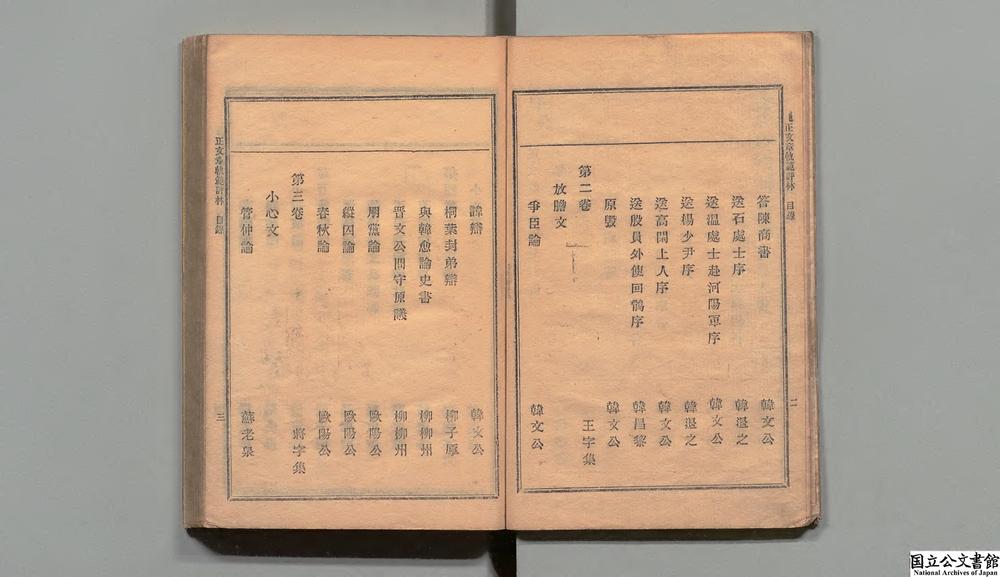 正文章軌範評林 目錄 二
答陳商書 韓文公
送石處士序 韓退之
送溫處士赴河陽軍序 韓文公
送楊少尹序 韓退之
送高閑上人序 韓文公
送殷員外使回鶻序 韓昌黎
原毀 韓文公
第二卷 王字集
放膽文
爭臣論 韓文公
諱辯 韓文公
桐葉封弟辯 柳子厚
與韓愈論史書 柳柳州
晉文公問守原議 柳柳州
朋黨論 歐陽公
縱囚論 歐陽公
春秋論 歐陽公
第三卷 將字集
小心文
管仲論 蘇老泉
正文章軌範評林 目錄 三
国立公文書館
National Archives of Japan